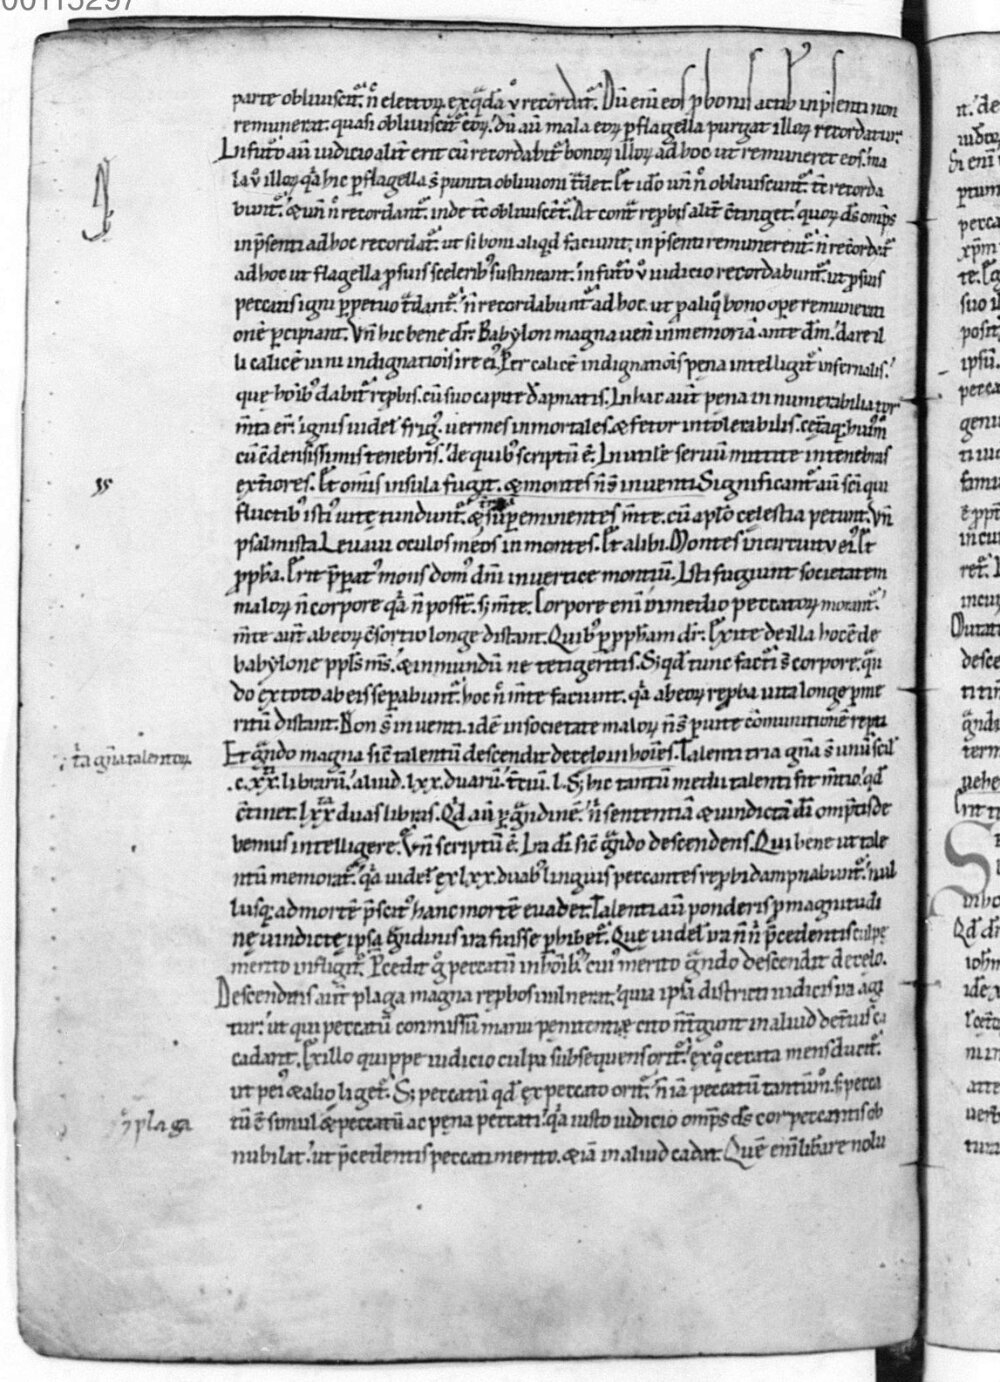 00115297
parte obliuiscit᷑. n̄ electoꝝ. ex q̄da ū recordat᷑. Dū eni eos ꝑ bonis actib in p̄senti non
remunerat. quasi obliuiscit᷑ eoꝝ. dū aū mala eoꝝ ꝑ flagella purgat illoꝝ recordatur.
In futo aū iudicio alit erit cū recordabit᷑ bonoꝝ illoꝝ ad hoc ut remuneret eos. ma
la ū illoꝝ qa hic ꝑ flagella s̄ punita obliuioni t̄det. Et ido un̄ n̄ obliuiscunt᷑. tc̄ recorda
bunt᷑. & un̄ n̄ recordant᷑. inde tc̄ obliuiscēt᷑. At cont̄ rep̄bis alit c̄tinget. quoꝝ ds̄ omp̄s
in p̄senti ad hoc recordat᷑. ut si boni aliqd faciunt. in p̄senti remunerent᷑. n̄ recordat᷑
ad hoc ut flagella ꝓ suis sceleribꝰ sustineant. in futo ū iudicio recordabunt᷑. ut ꝓ suis
peccatis igni ꝑpetuo t̄dant᷑. n̄ recordabunt᷑ ad hoc. ut ꝓ aliqͦ bono ope remunerati
onē ꝑcipiant. Vn̄ hic bene dr̄. Babylon magna uenˀ in memoriā ante dm̄. dare il
li calicē uini indignatiois ire eiꝰ. Per calicē indignatiois pena intelligit᷑ infernalis.
que hoibꝰ dabit᷑ rep̄bis. cū suo capite dāpnatis. In hac aut pena innumerabilia tor
m̄ta er̄. ignis uidelˀ frigꝰ. uermes inmortales. & fetor intolerabilis. cetaqꝫ huiꝰm̄
cū c̄densissimis tenebris. de quibꝰ scriptū ē. Inutile seruū mittite in tenebras
ext̄iores. Et omis insula fugit. & montes n̄ s̄ inuenti. Significant᷑ aū sci qui
fluctibꝰ istiꝰ uite tundunt᷑. & suꝑeminentes m̄te. cū aplo celestia petunt. Vn̄
psalmista. Leuaui oculos meos in montes. Et alibi. Montes in circuitu eiꝰ. Et
ꝓpħa. Erit p̄paratꝰ mons domꝰ dn̄i in uertice montiū. Isti fugiunt societatem
maloꝝ n̄ corpore qa n̄ poss̄t. sꝫ m̄te. Corpore eni in medio peccatoꝝ morant᷑.
m̄te aut ab eoꝝ c̄sortio longe distant. Quibꝰ ꝑ ꝓpħam dr̄. Exite de illa hoc ē de
babylone ppl̄s ms̄. & inmundū ne tetigeritis. Sꝫ qd tunc facti s̄ corpore. qn̄
do ex toto ab eis sepabunt᷑. hoc n̄c m̄te faciunt. qa ab eoꝝ rep̄ba uita longe ꝑ me
ritū distant. Non s̄ inuenti. idē in societate maloꝝ n̄ s̄ ꝑ uite c̄munitionē repti
Et gͣndo magna sic̄ talentū descendit de celo in hoies. Talenti tria gn̄a s̄ unū scilˀ
.c.xx. libraꝝ. aliud. lxx. duaꝝ. tciū. l. Sꝫ hic tantū medii talenti fit m̄tio. qd
c̄tinet. lxx duas libras. Qd aū ꝑ gͣndinē. n̄ sententiā & uindictā di omp̄tis de
bemus intelligere. Vn̄ scriptū ē. Ira di sic̄ gͣndo descendens. Qui bene ut tale
ntū memorat᷑. qa uidelˀ ex lxx. duabꝰ linguis peccantes rep̄bi dampnabunt᷑. nul
lusqꝫ ad mortē p̄scitꝰ hanc mortē euadet. Talenti aū ponderis ꝓ magnitudi
ne uindicte ipsa gͣndinis ira fuisse ꝑhibet᷑. Que uidelˀ ira n̄ n̄ p̄cedentis culpe
merito infligit᷑. P̄cedit g peccatū in hoibꝰ. cuiꝰ merito gͣndo descendit de celo.
Descendens aūt plaga magna rep̄bos uulnerat. quia ipsa districti iudicis ira agi
tur. ut qui peccatū conmissū manu penitentie cito n̄ t̄gunt in aliud det̄ius ca
cadant. Ex illo quippe iudicio culpa subsequens orit᷑. ex qͦ cecata mens ducit᷑.
ut peiꝰ & alio liget᷑. Sꝫ peccatū qd ex peccato orit᷑. n̄ iā peccatū tantūmͦ. sꝫ pecca
tū ē simul & peccatū ac pena peccati. qa iusto iudicio omp̄s ds̄ cor peccantis ob
nubilat. ut p̄cedentis peccati merito. & iā in aliud cadat. Quē eni lib̄are nolu
tͥa gn̄a talentoꝝ
plaga